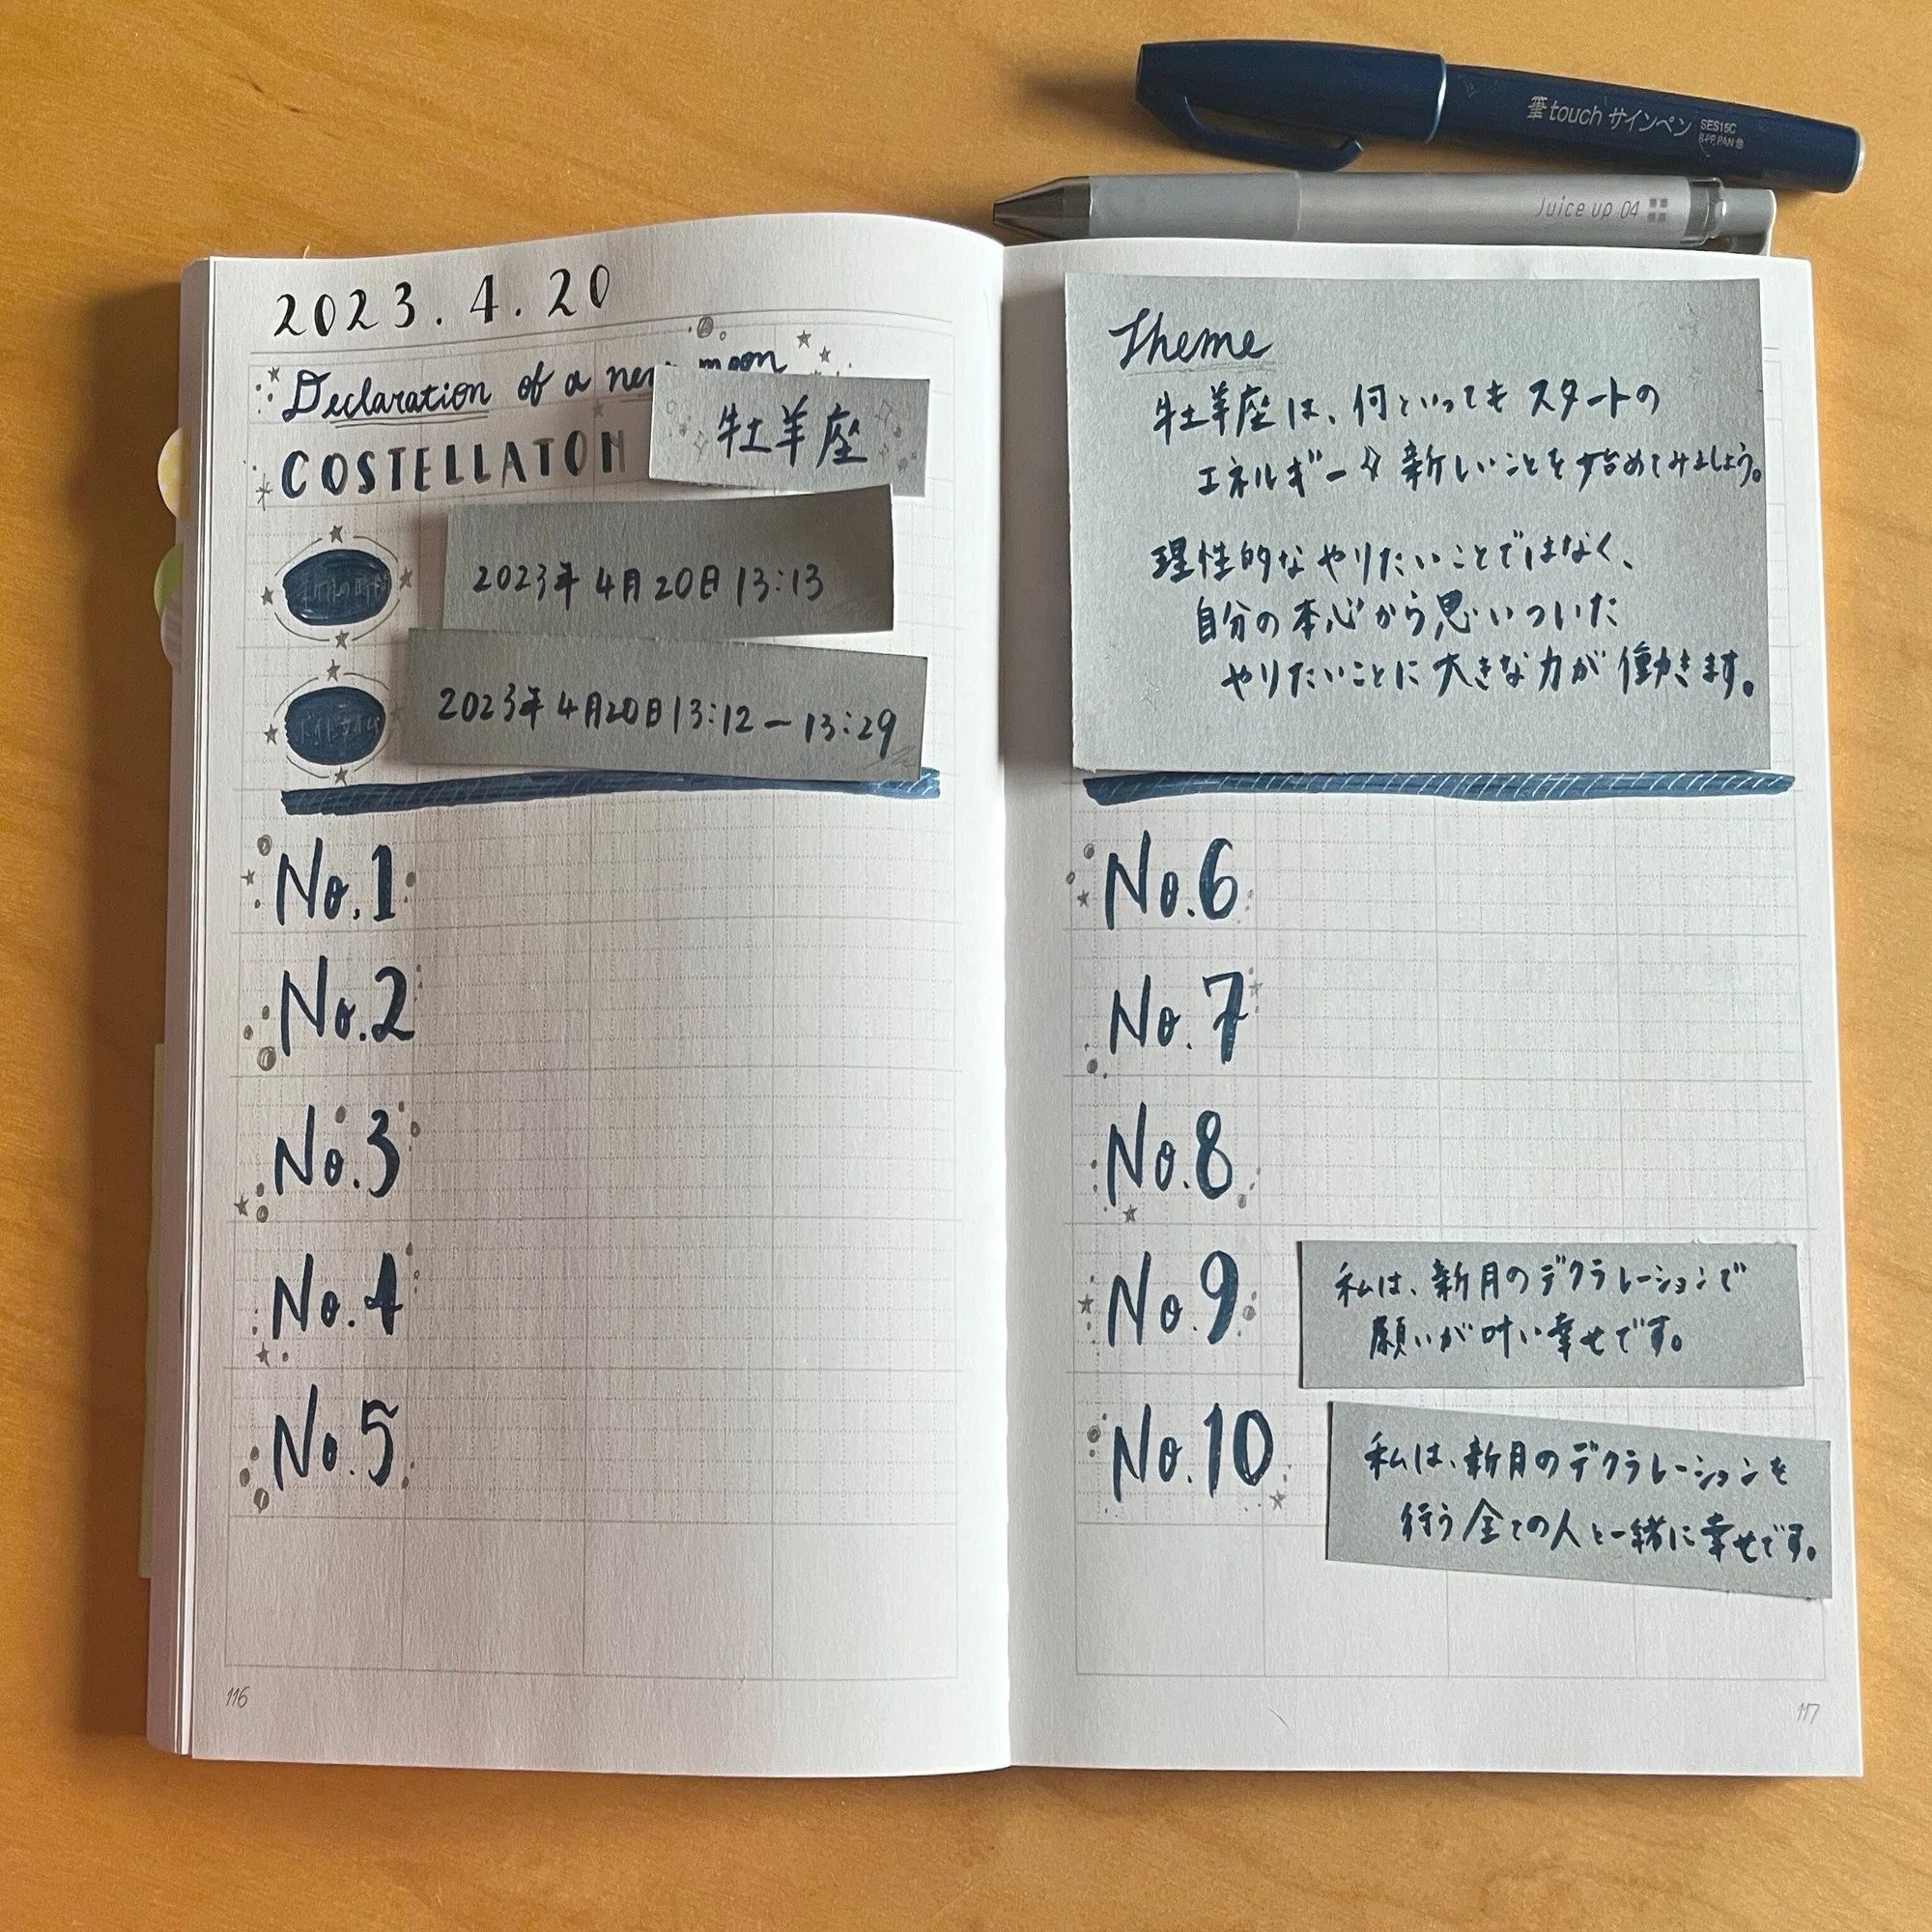 筆touchサインペン
SES15C
Juice up 04
2023.4.20
Declaration of a new moon
COSTELLATON
牡羊座
新月の時間
2023年4月20日13:13
ボイドタイム
2023年4月20日13:12ー13:29
No.1
No.2
No.3
No.4
No.5
116
Theme
牡羊座は、何といってもスタートの
エネルギー 新しいことを始めてみましょう。
理性的なやりたいことではなく、
自分の本心から思いついた
やりたいことに大きな力が働きます。
No.6
No.7
No.8
No.9
私は、新月のデクラレーションで
願いが叶い幸せです。
No.10
私は、新月のデクラレーションを
行う全ての人と一緒に幸せです。
117